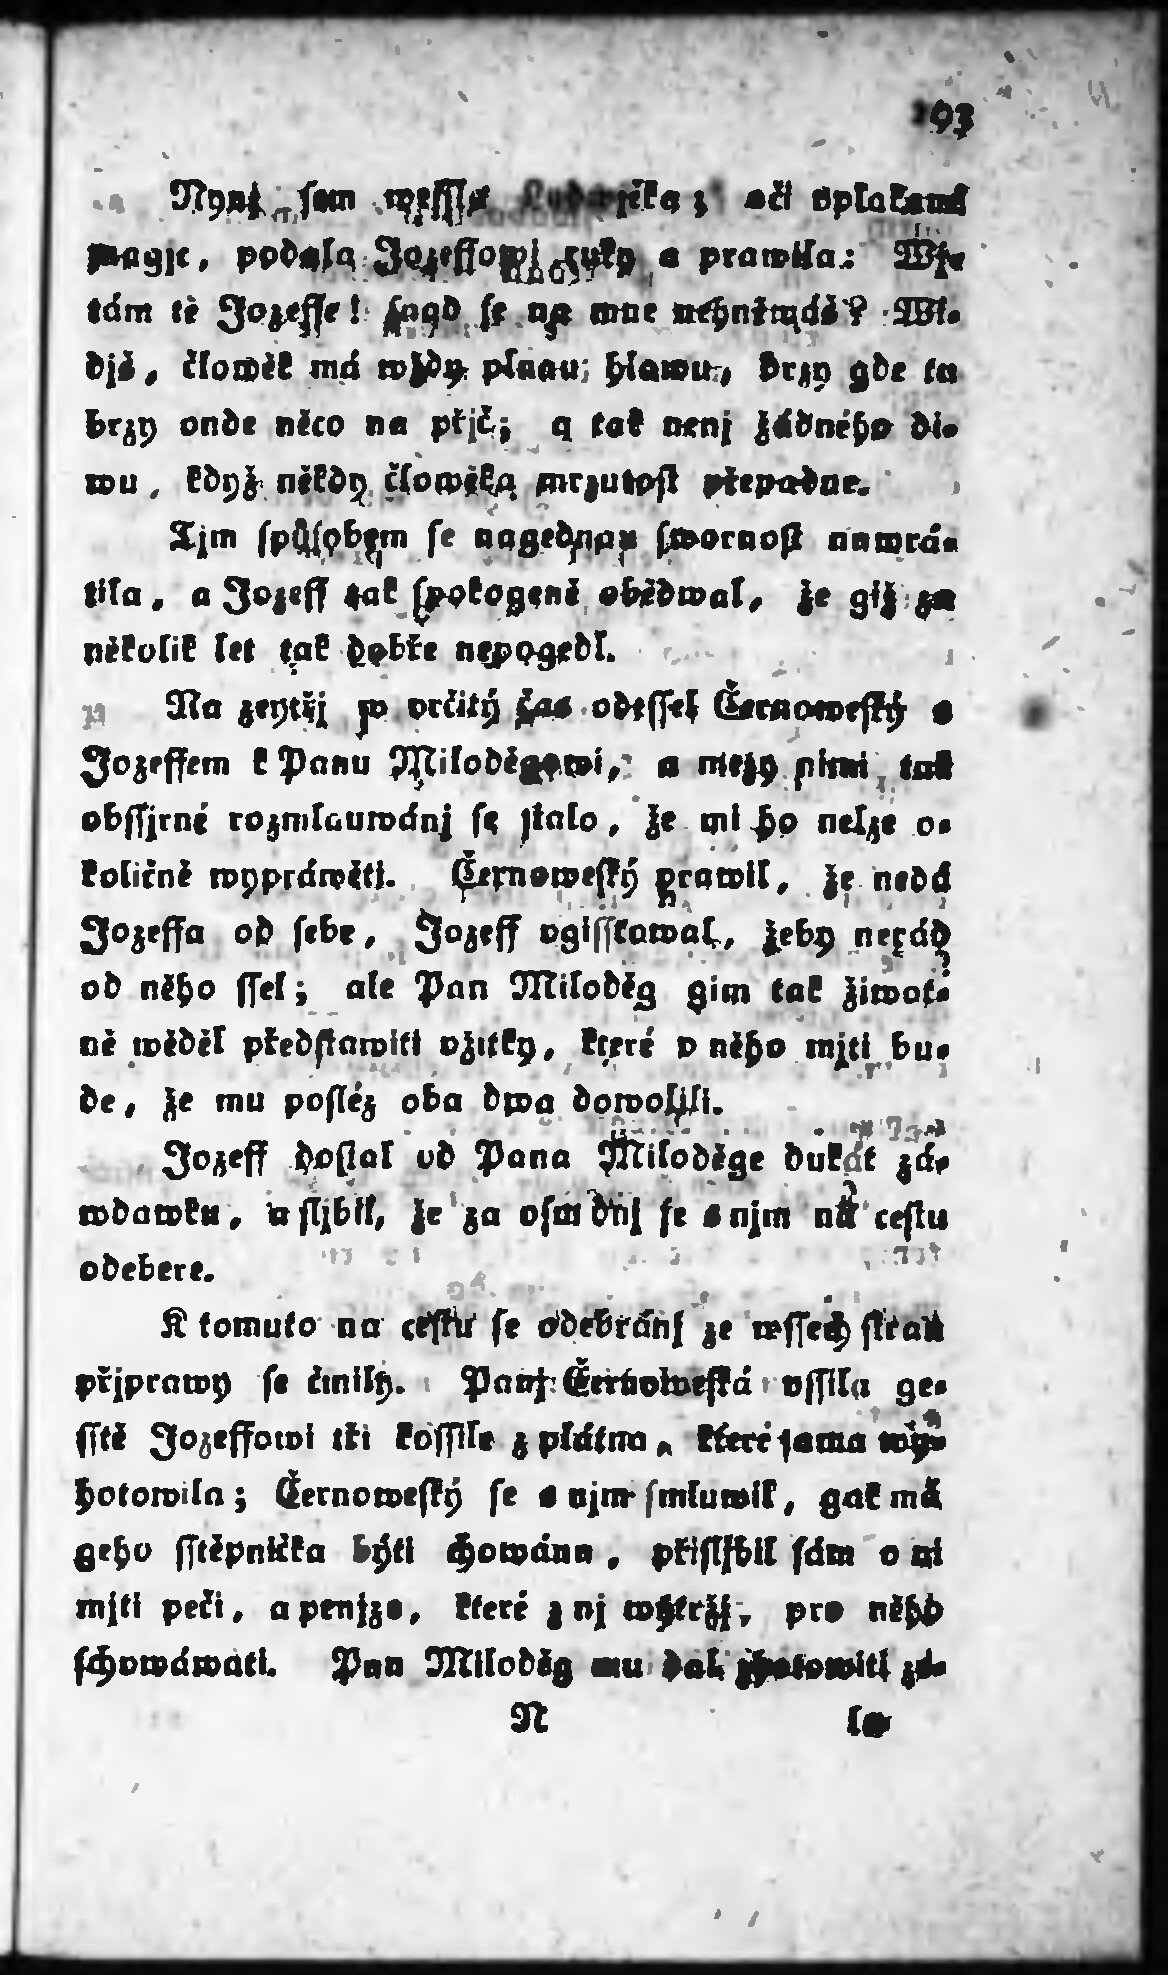 193
Nynj sem wessla Ludwička; oči vplakané
magjc, podala Jozeffowi ruku a prawila: Wj-
tám tě Jozeffe! snad se na mne nehněwáš? Wi-
djš, člowěk má wždy plnau hlawu, brzy gde tu
brzy onde něco na přjč; a tak nenj žádného di-
wu, když někdy člowěka mrzutost přepadne.
Tjm spůsobem se nagednau swornost nawrá-
tila, a Jozeff tak spokogeně obědwal, že giž za
několik let tak dobře nepogedl.
Na zeytřj w vrčitý čas odessel Černoweský s
Jozeffem k Panu Miloděgowi, a mezy nimi tak
obssjrné rozmlauwánj se stalo, že mi ho nelze o-
količně wypráwěti. Černoweský prawil, že nedá
Jozeffa od sebe, Jozeff vgissťowal, žeby nerád
od něho ssel; ale Pan Miloděg gim tak žiwot-
ně wěděl představiti vžitky, které v něho mjti bu-
de, že mu posléz oba dwa dowolili.
Jozeff dostal od Pana Miloděge dukát zá-
wdawku, a sljbil, že za osm dnj se s njm na cestu
odebere.
K tomuto na cestu se odebránj ze wssech stran
přjprawy se činily. Panj Černoweská vssila ge-
sstě Jozeffowi tři kossile z plátna, které sama wy-
hotowila; Černoweský se s njm smluwil, gak má
geho sstěpnička býti chowána, přisljbil sám o ni
mjti peči, a penjze, které z nj wytržj, pro něho
schowáwati. Pan Miloděg mu dal zhotowiti zá-
N la-